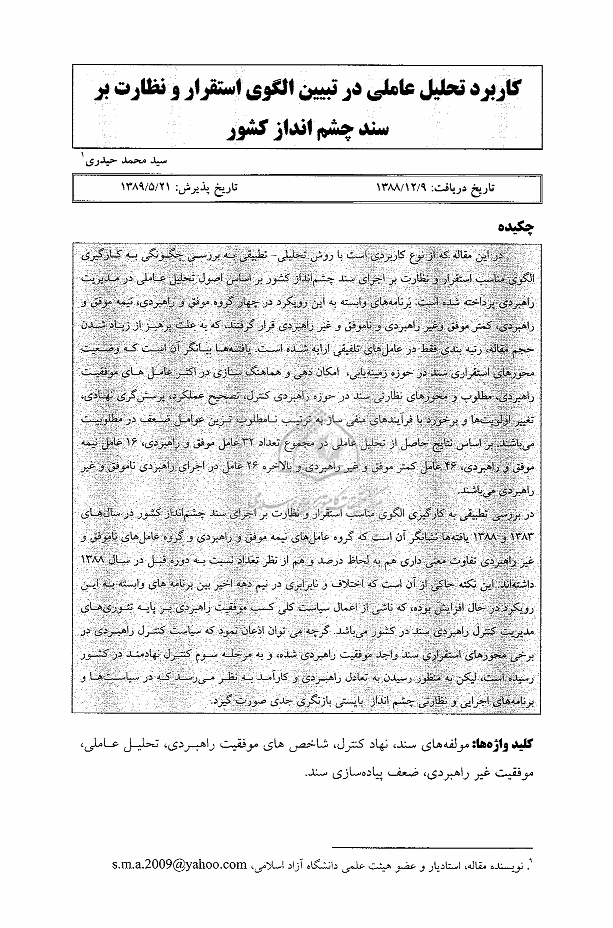 کاربرد تحلیل عاملی در تبیین الگوی استقرار و نظارت بر
سند چشم انداز کشور
سید محمد حیدری۱
تاریخ دریافت: ۱۳۸۸/۱۲/۹ تاریخ پذیرش: ۱۳۸۹/۵/۲۱
چکیده
در این مقاله که از نوع کاربردی است با روش تحلیلی- تطبیقی به بررسی چگونگی به کارگیری
الگوی مناسب استقرار و نظارت بر اجرای سند چشم‌انداز کشور بر اساس اصول تحلیل عاملی در مدیریت
راهبردی پرداخته شده است. برنامه‌های وابسته به این رویکرد در چهار گروه موفق و راهبردی، نیمه موفق و
راهبردی، کمتر موفق وغیر راهبردی و ناموفق و غیر راهبردی قرار گرفتند، که به علت پرهیز از زیاد شدن
حجم مقاله، رتبه بندی فقط در عامل‌های تلفیقی ارایه شده است. یافته‌ها بیانگر آن است که وضعیت
محورهای استقراری سند در حوزه زمینه‌یابی، امکان دهی و هماهنگ سازی در اکثر عامل های موفقیت
راهبردی، مطلوب و محورهای نظارتی سند در حوزه راهبردی کنترل، تصحیح عملکرد، پرسش‌گری نهادی،
تغییر اولویت‌ها و برخورد با فرآیندهای منفی ساز به ترتیب نامطلوب ترین عوامل ضعف در مطلوبیت
می‌باشند. بر اساس نتایج حاصل از تحلیل عاملی در مجموع تعداد ۳۲ عامل موفق و راهبردی، ۱۶ عامل نیمه
موفق و راهبردی، ۴۶ عامل کمتر موفق و غیر راهبردی و بالاخره ۲۶ عامل در اجرای راهبردی ناموفق و غیر
راهبردی می‌باشند.
در بررسی تطبیقی به کارگیری الگوی مناسب استقرار و نظارت بر اجرای سند چشم‌انداز کشور در سال‌های
۱۳۸۳ و ۱۳۸۸ یافته‌ها نشانگر آن است که گروه عامل‌های نیمه موفق و راهبردی و گروه عامل‌های ناموفق و
غیر راهبردی تفاوت معنی داری هم به لحاظ درصد و هم از نظر تعداد نسبت به دوره قبل در سال ۱۳۸۸
داشته‌اند. این نکته حاکی از آن است که اختلاف و نابرابری در نیم دهه اخیر بین برنامه های وابسته به این
رویکرد در حال افزایش بوده، که ناشی از اعمال سیاست کلی کسب موفقیت راهبردی بر پایه تئوری‌های
مدیریت کنترل راهبردی سند در کشور می‌باشد. گرچه می توان اذعان نمود که سیاست کنترل راهبردی در
برخی محورهای استقراری سند واجد موفقیت راهبردی شده، و به مرحله سوم کنترل نهادمند در کشور
رسیده است، لیکن به منظور رسیدن به تعادل راهبردی و کارآمد به نظر می‌رسد که در سیاست‌ها و
برنامه‌های اجرایی و نظارتی چشم انداز بایستی بازنگری جدی صورت گیرد.
کلید واژه‌ها: مولفه‌های سند، نهاد کنترل، شاخص های موفقیت راهبردی، تحلیل عاملی،
موفقیت غیر راهبردی، ضعف پیاده‌سازی سند.
۱. نویسنده مقاله، استادیار و عضو هیئت علمی دانشگاه آزاد اسلامی، s.m.a.2009@yahoo.com